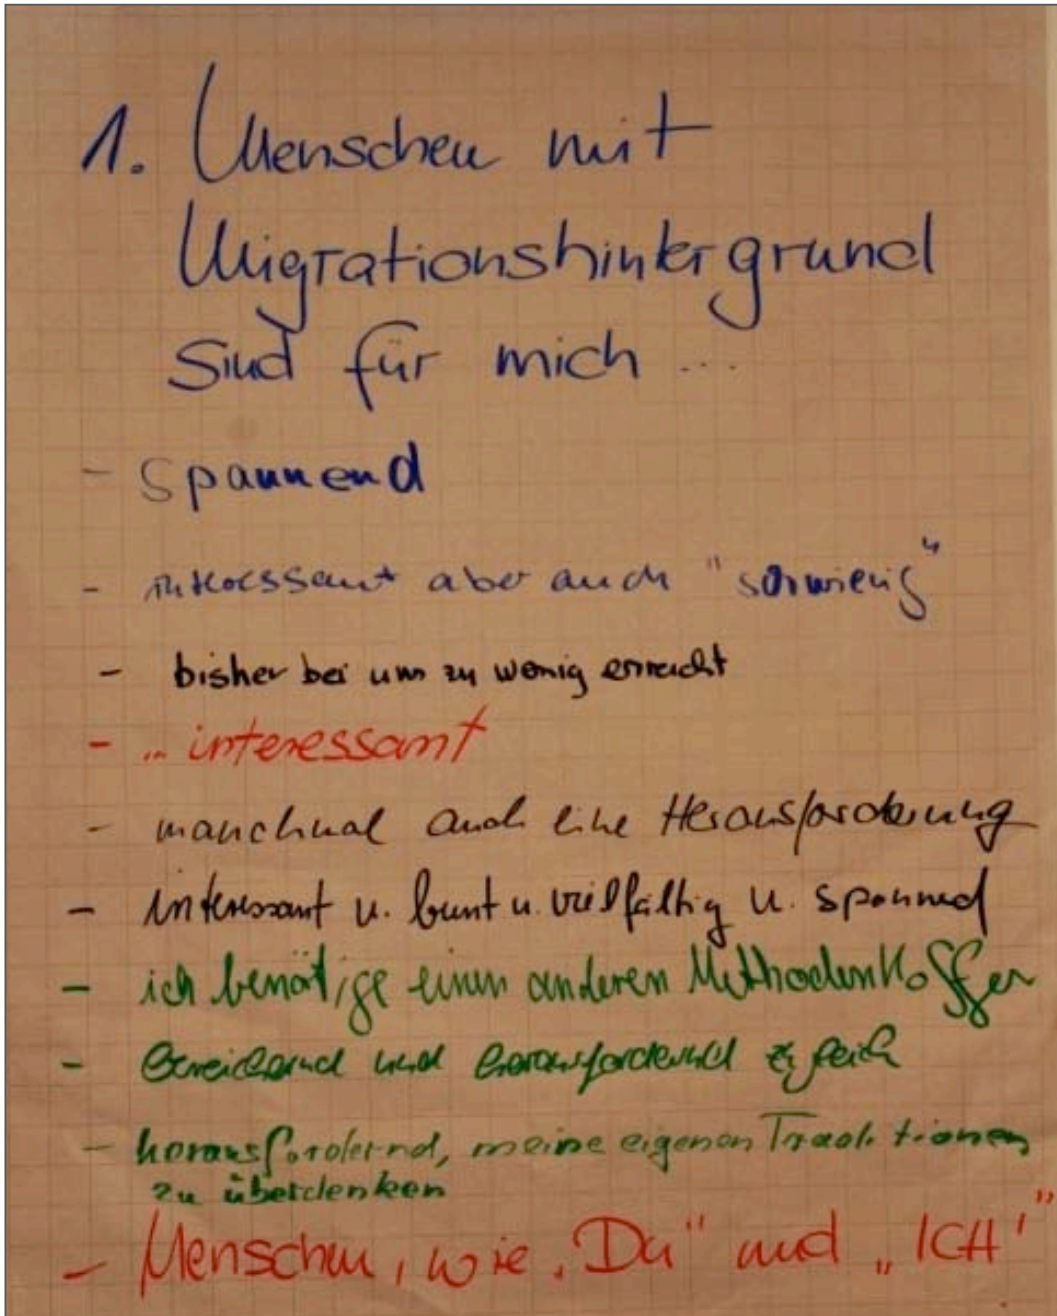 1. Menschen mit
Migrationshintergrund
sind für mich ...
- spannend
- interessant aber auch "schwierig"
- bisher bei uns zu wenig erreicht
- ... interessant
- manchmal auch eine Herausforderung
- interessant u. bunt u. vielfältig u. spannend
- ich benötige einen anderen Methodenkoffer
- bereichernd und herausfordernd zugleich
- herausfordernd, meine eigenen Traditionen
zu überdenken
- Menschen, wie „Du" und „ICH"